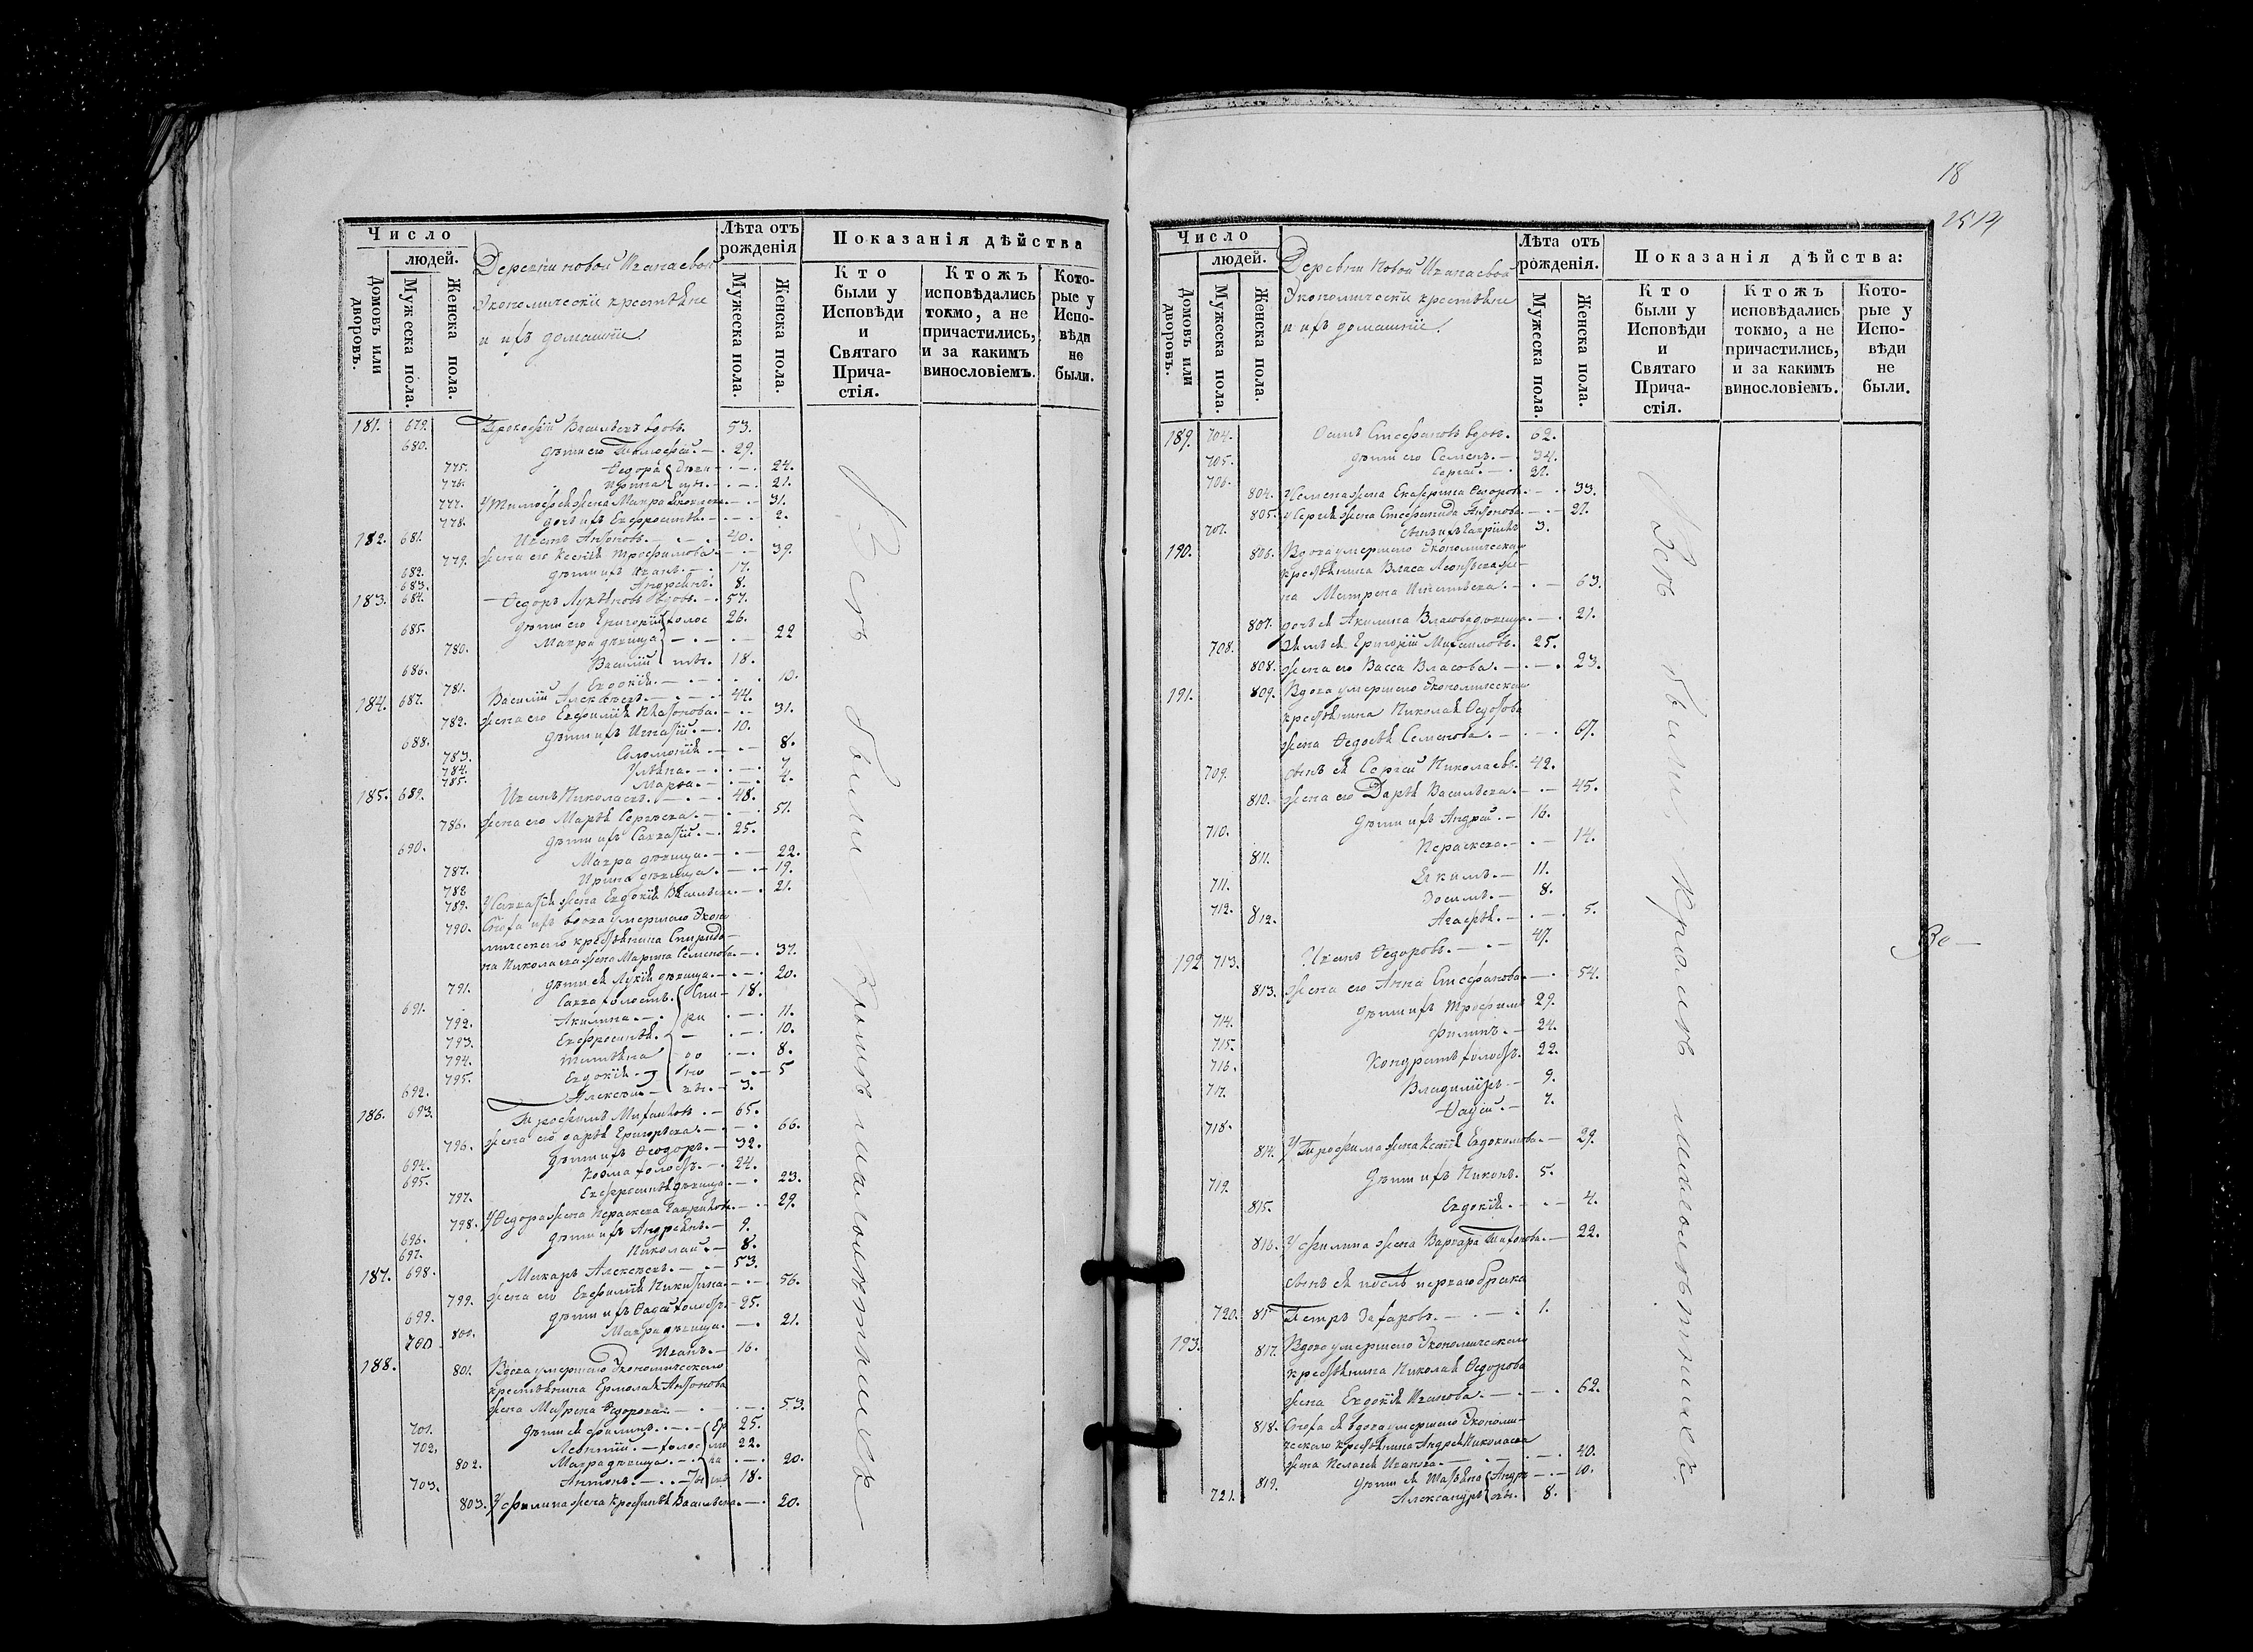 Число
людей.
Домовъ или дворовъ.
Мужеска пола.
Женска пола.
Деревни новой
Экономическіе крестьяне
и ихъ домашніе
Лѣта отъ рожденія
Мужеска пола.
Женска пола.
Показанія дѣйства
Кто были у Исповѣди и Святаго Причастія.
Ктожъ исповѣдались токмо, а не причастились, и за какимъ винословіемъ.
Которые у Исповѣди не были.
181. 679. Прокофій Васильевъ вдовъ. 53.
680. дѣти его Тимофей. 29.
775. Ѳедора 24.
776. Ирина 21.
777. У Тимофея жена Мавра 31.
778. дочь ихъ Евфросинія. 2.
182. 681. Игнатъ Антоновъ. 40.
779. жена его Ксенія Трофимова. 39.
682. дѣти ихъ Иванъ. 17.
683. Андреянъ. 8.
183. 684. Ѳедоръ Лукьяновъ вдовъ. 57.
685. дѣти его Григорій холос 26.
780. Мавра дѣвица 22
686. Василій 18.
781. Евдокія. 13.
184. 687. Василій Алексѣевъ. 44.
782. жена его Евфимія 31.
688. дѣти ихъ Игнатій. 10.
783. Соломонія 8.
784. Ульяна. 7.
785. Марѳа. 4.
185. 689. Иванъ Николаевъ. 48.
786. жена его Марья Сергѣева. 51.
690. дѣти ихъ Савватій. 25.
787. Мавра дѣвица. 22.
788 Ирина дѣвица. 19.
789. У Савватія жена Евдокія Васильева. 21.
790. Сноха ихъ вдова умершаго Эконо
мическаго крестьянина Спиридо
на Николаева жена Марина Семенова. 37.
791. дѣти ея Лукія дѣвица. 20.
691. Савва холостъ. 18.
792. Акилина. 11.
793. Евфросинія. 10.
794. Татьяна 8.
795. Евдокія. 5
692. Алексѣй 3.
186. 693. Трофимъ Михайловъ. 65.
796. жена его Дарья Григорьева. 66.
694. дѣти ихъ Ѳеодоръ. 32.
695. Козма холостъ. 24.
797. Евфросинія дѣвица. 23.
798. У Ѳедора жена Параскева Гаврилова. 29.
696. дѣти ихъ Андреянъ. 9.
697. Николай. 8.
187. 698. Макаръ Алексѣевъ. 53.
799. жена его Евфимія Никитина. 56.
699. дѣти ихъ Ѳадей холостъ. 25.
800. Мавра дѣвица. 21.
700 Иванъ. 16.
188. 801. Вдова умершаго Экономическаго
крестьянина Ермолая Антонова
жена Матрена Ѳедорова. 53.
701. дѣти ея Филипъ. 25.
702. Леонтій. холос 22.
802. Мавра дѣвица. 20.
703. Антонъ. 18.
803. У Филипа жена Васильева. 20.
Всѣ были кромѣ малолѣтнихъ
18
2514
Число
людей.
Домовъ или дворовъ.
Мужеска пола.
Женска пола.
Деревни Новой
Экономическіе крестьяне
и ихъ домашніе.
Лѣта отъ рожденія.
Мужеска пола.
Женска пола.
Показанія дѣйства:
Кто были у Исповѣди и Святаго Причастія.
Ктожъ исповѣдались токмо, а не причастились, и за какимъ винословіемъ.
Которые у Исповѣди не были.
189. 704. Стефановъ вдовъ. 62.
705. дѣти его Семенъ. 34.
706. Сергей. 32.
804. У Семена жена Екатерина Ѳедорова. 33.
805. У Сергѣя жена Стефанида Антонова. 27.
707. сынъ ихъ Гавріилъ 3.
190. 806. Вдова умершаго Экономическаго
крестьянина Власа Леонтьева же
на Матрена Игнатьева. 63.
807. дочь ея Акилина Власова дѣвица. 21.
708. Зять ея Григорій Михайловъ. 25.
808. жена его Васса Власова. 23.
191. 809. Вдова умершаго Экономическаго
крестьянина Николая
жена Ѳедосья Семенова. 67.
709. сынъ ея Сергей Николаевъ. 42.
810. жена его Дарья Васильева. 45.
710. дѣти ихъ Андрей. 16.
811. Параскева. 14.
711. 11.
712. Зосимъ. 8.
812. Агафья. 5.
192 713. Иванъ Ѳедоровъ. 47.
813. жена его Анна Стефанова. 54.
714. дѣти ихъ Трофимъ 29.
715. Филипъ. 24.
716. Кондратъ холостъ. 22.
717. Владимиръ 9.
718. Ѳадей. 7.
814. У Трофима жена Ксенія Евдокимова. 29.
719. дѣти ихъ Никонъ. 5.
815. Евдокія. 4.
816. У Филипа жена Варвара 22.
сынъ ея послѣ перваго брака
720. Петръ Захаровъ. 1.
193. 817. Вдова умершаго Экономическаго
крестьянина Николая Ѳедорова
жена Евдокія Иванова. 62.
818. Сноха ея вдова умершаго Экономи-
ческаго крестьянина Андрея Николаева
жена Пелагея Иванова. 40.
819. дѣти ея Татьяна 10.
721. Александръ 8.
Всѣ были кромѣ малолѣтнихъ.